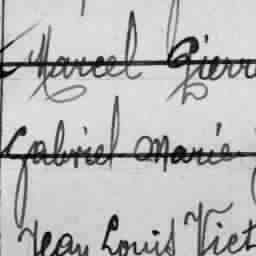 Marcel Pierr
Gabriel Marie
Jean Louis Vict